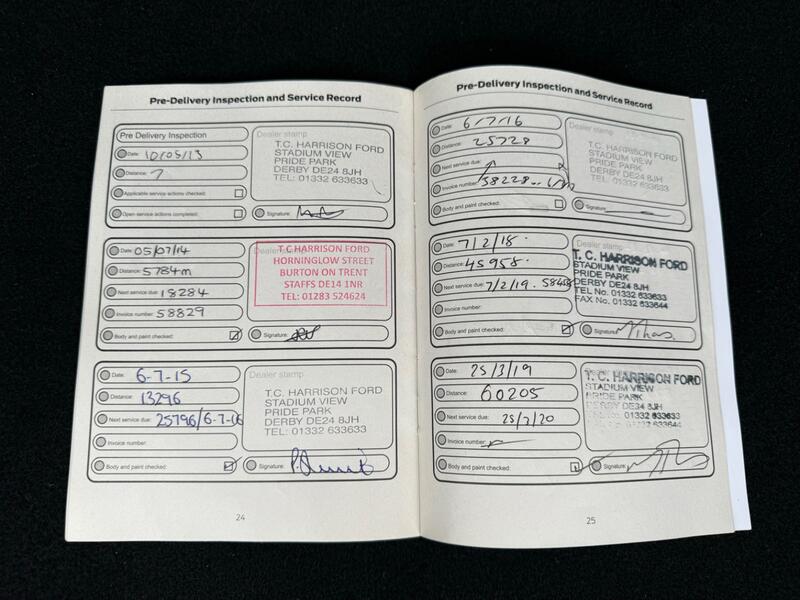 Pre-Delivery Inspection and Service Record
Pre Delivery Inspection
Date: 10/05/13
Distance: 7
Applicable service actions checked:
Open service actions completed:
Dealer stamp
T.C. HARRISON FORD
STADIUM VIEW
PRIDE PARK
DERBY DE24 8JH
TEL: 01332 633633
Signature:
Date: 05/07/14
Distance: 5784m
Next service due: 18284
Invoice number: 58829
Body and paint checked:
Dealer stamp
T C HARRISON FORD
HORNINGLOW STREET
BURTON ON TRENT
STAFFS DE14 1NR
TEL: 01283 524624
Signature:
Date: 6-7-15
Distance: 13296
Next service due: 25796/6-7-06
Invoice number:
Body and paint checked:
Dealer stamp
T.C. HARRISON FORD
STADIUM VIEW
PRIDE PARK
DERBY DE24 8JH
TEL: 01332 633633
Signature:
24
Pre-Delivery Inspection and Service Record
Date: 6/7/16
Distance: 25728
Next service due:
Invoice number: 38228
Body and paint checked:
Dealer stamp
T.C. HARRISON FORD
STADIUM VIEW
PRIDE PARK
DERBY DE24 8JH
TEL: 01332 633633
Signature:
Date: 7/2/18.
Distance: 45958.
Next service due: 7/2/19.
Invoice number:
Body and paint checked:
T. C. HARRISON FORD
STADIUM VIEW
PRIDE PARK
DERBY DE24 8JH
TEL No. 01332 633633
FAX No. 01332 633644
Signature:
Date: 25/3/19
Distance: 60205
Next service due: 25/3/20
Invoice number:
Body and paint checked:
T. C. HARRISON FORD
STADIUM VIEW
PRIDE PARK
DERBY DE24 8JH
01332 633633
01332 633644
Signature:
25